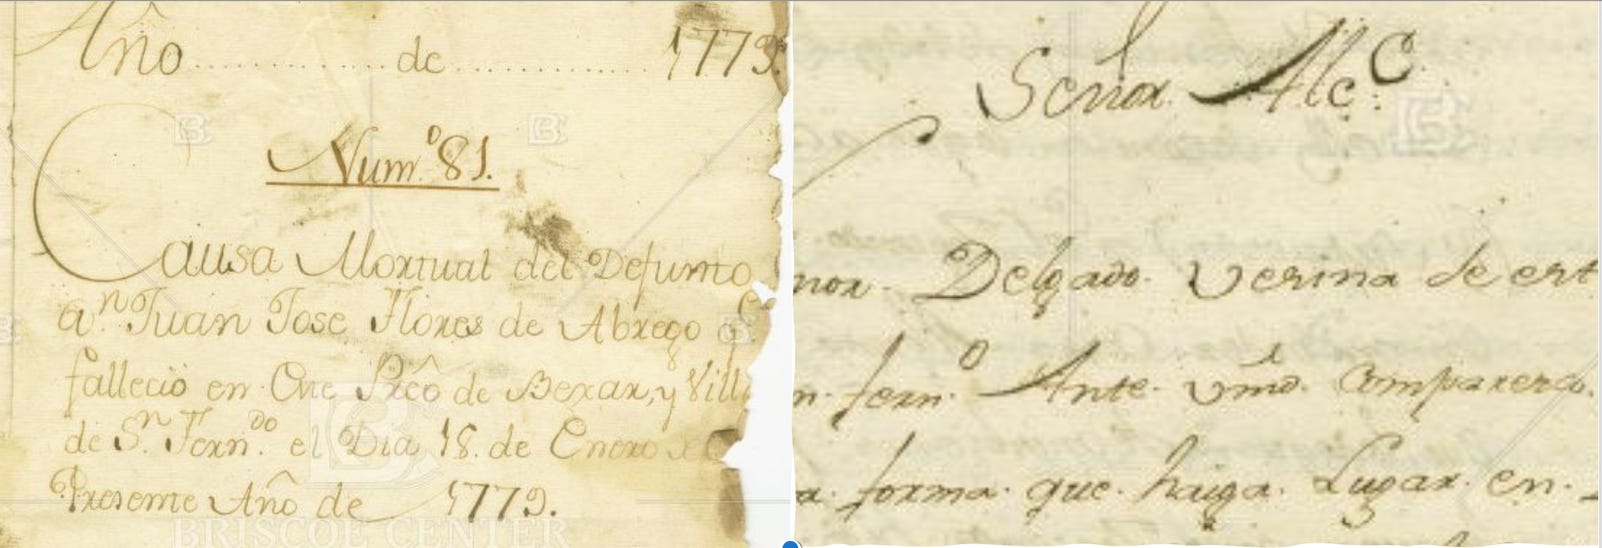 Año de 1779.
Num.º 81.
Causa Mortual del Defunto
Dn. Juan Jose Flores de Abrego
falleció en Este Preô de Bexar, y Villa
de Sn. Fern.do el Dia 18. de Enero
Presente Año de 1779.
BRISCOE CENTER
Señor Alc.e
nor. Delgado. Vecina de est
n. fern.o Ante. vmd. Comparesco.
a. forma. que. haiga. Lugar. en.